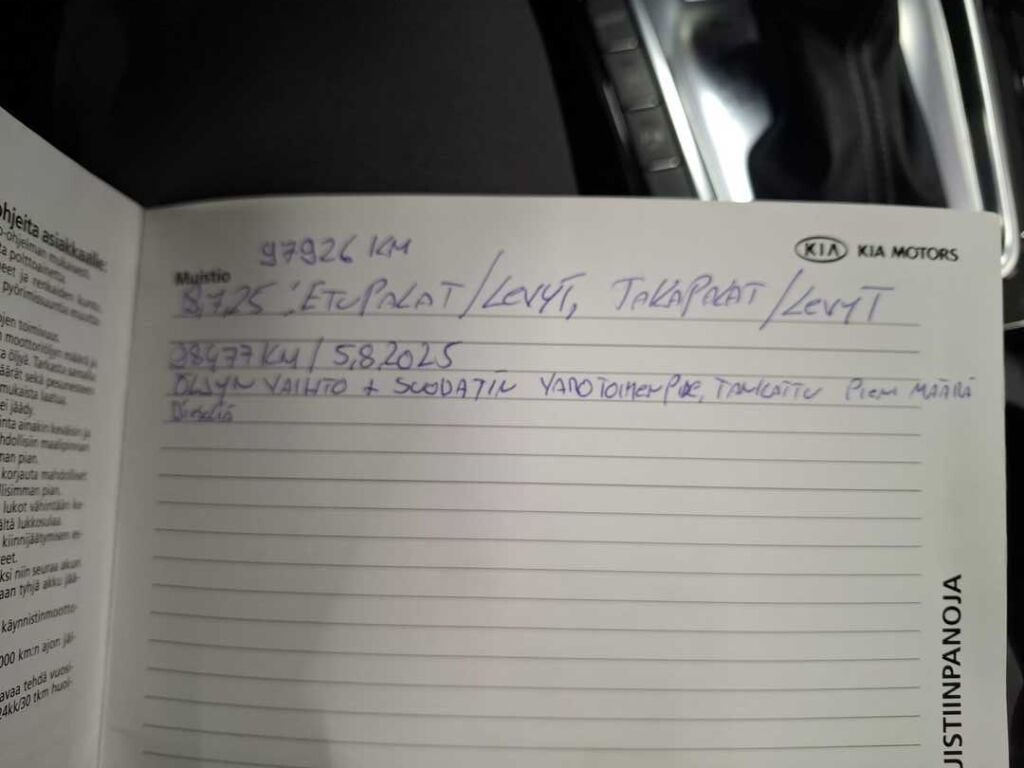 97926 KM
KIA KIA MOTORS
Muistio
8,7,25 : ETUPALAT/LEVYT, TAKAPALAT/LEVYT
98477 KM / 5,8,2025
ÖLJYN VAIHTO + SUODATIN VAROTOIMENPIDE, TANKATTU PIENI MÄÄRÄ
Dieseliä
MUISTIINPANOJA
ohjeita asiakkaalle:
o-ohjelman mukaisesti.
ta polttoainetta.
neet ja renkaiden kunto,
pyörimissuuntia muuttaa
jen toimivuus.
n moottoriöljyn määrä ja
ta öljyä. Tarkasta samalla
äärät sekä pesunesteen
mukaista laatua,
ei jäädy.
inta ainakin keväisin ja
hdollisiin maalipinnan
man pian.
korjauta mahdolliset
llisimman pian.
lukot vähintään ke-
ältä lukkosulaa.
kiinnijäätymisen es-
eet.
ksi niin seuraa akun
aan tyhjä akku jää-
käynnistinmootto-
000 km:n ajon jäl-
avaa tehdä vuosi-
24kk/30 tkm huol-